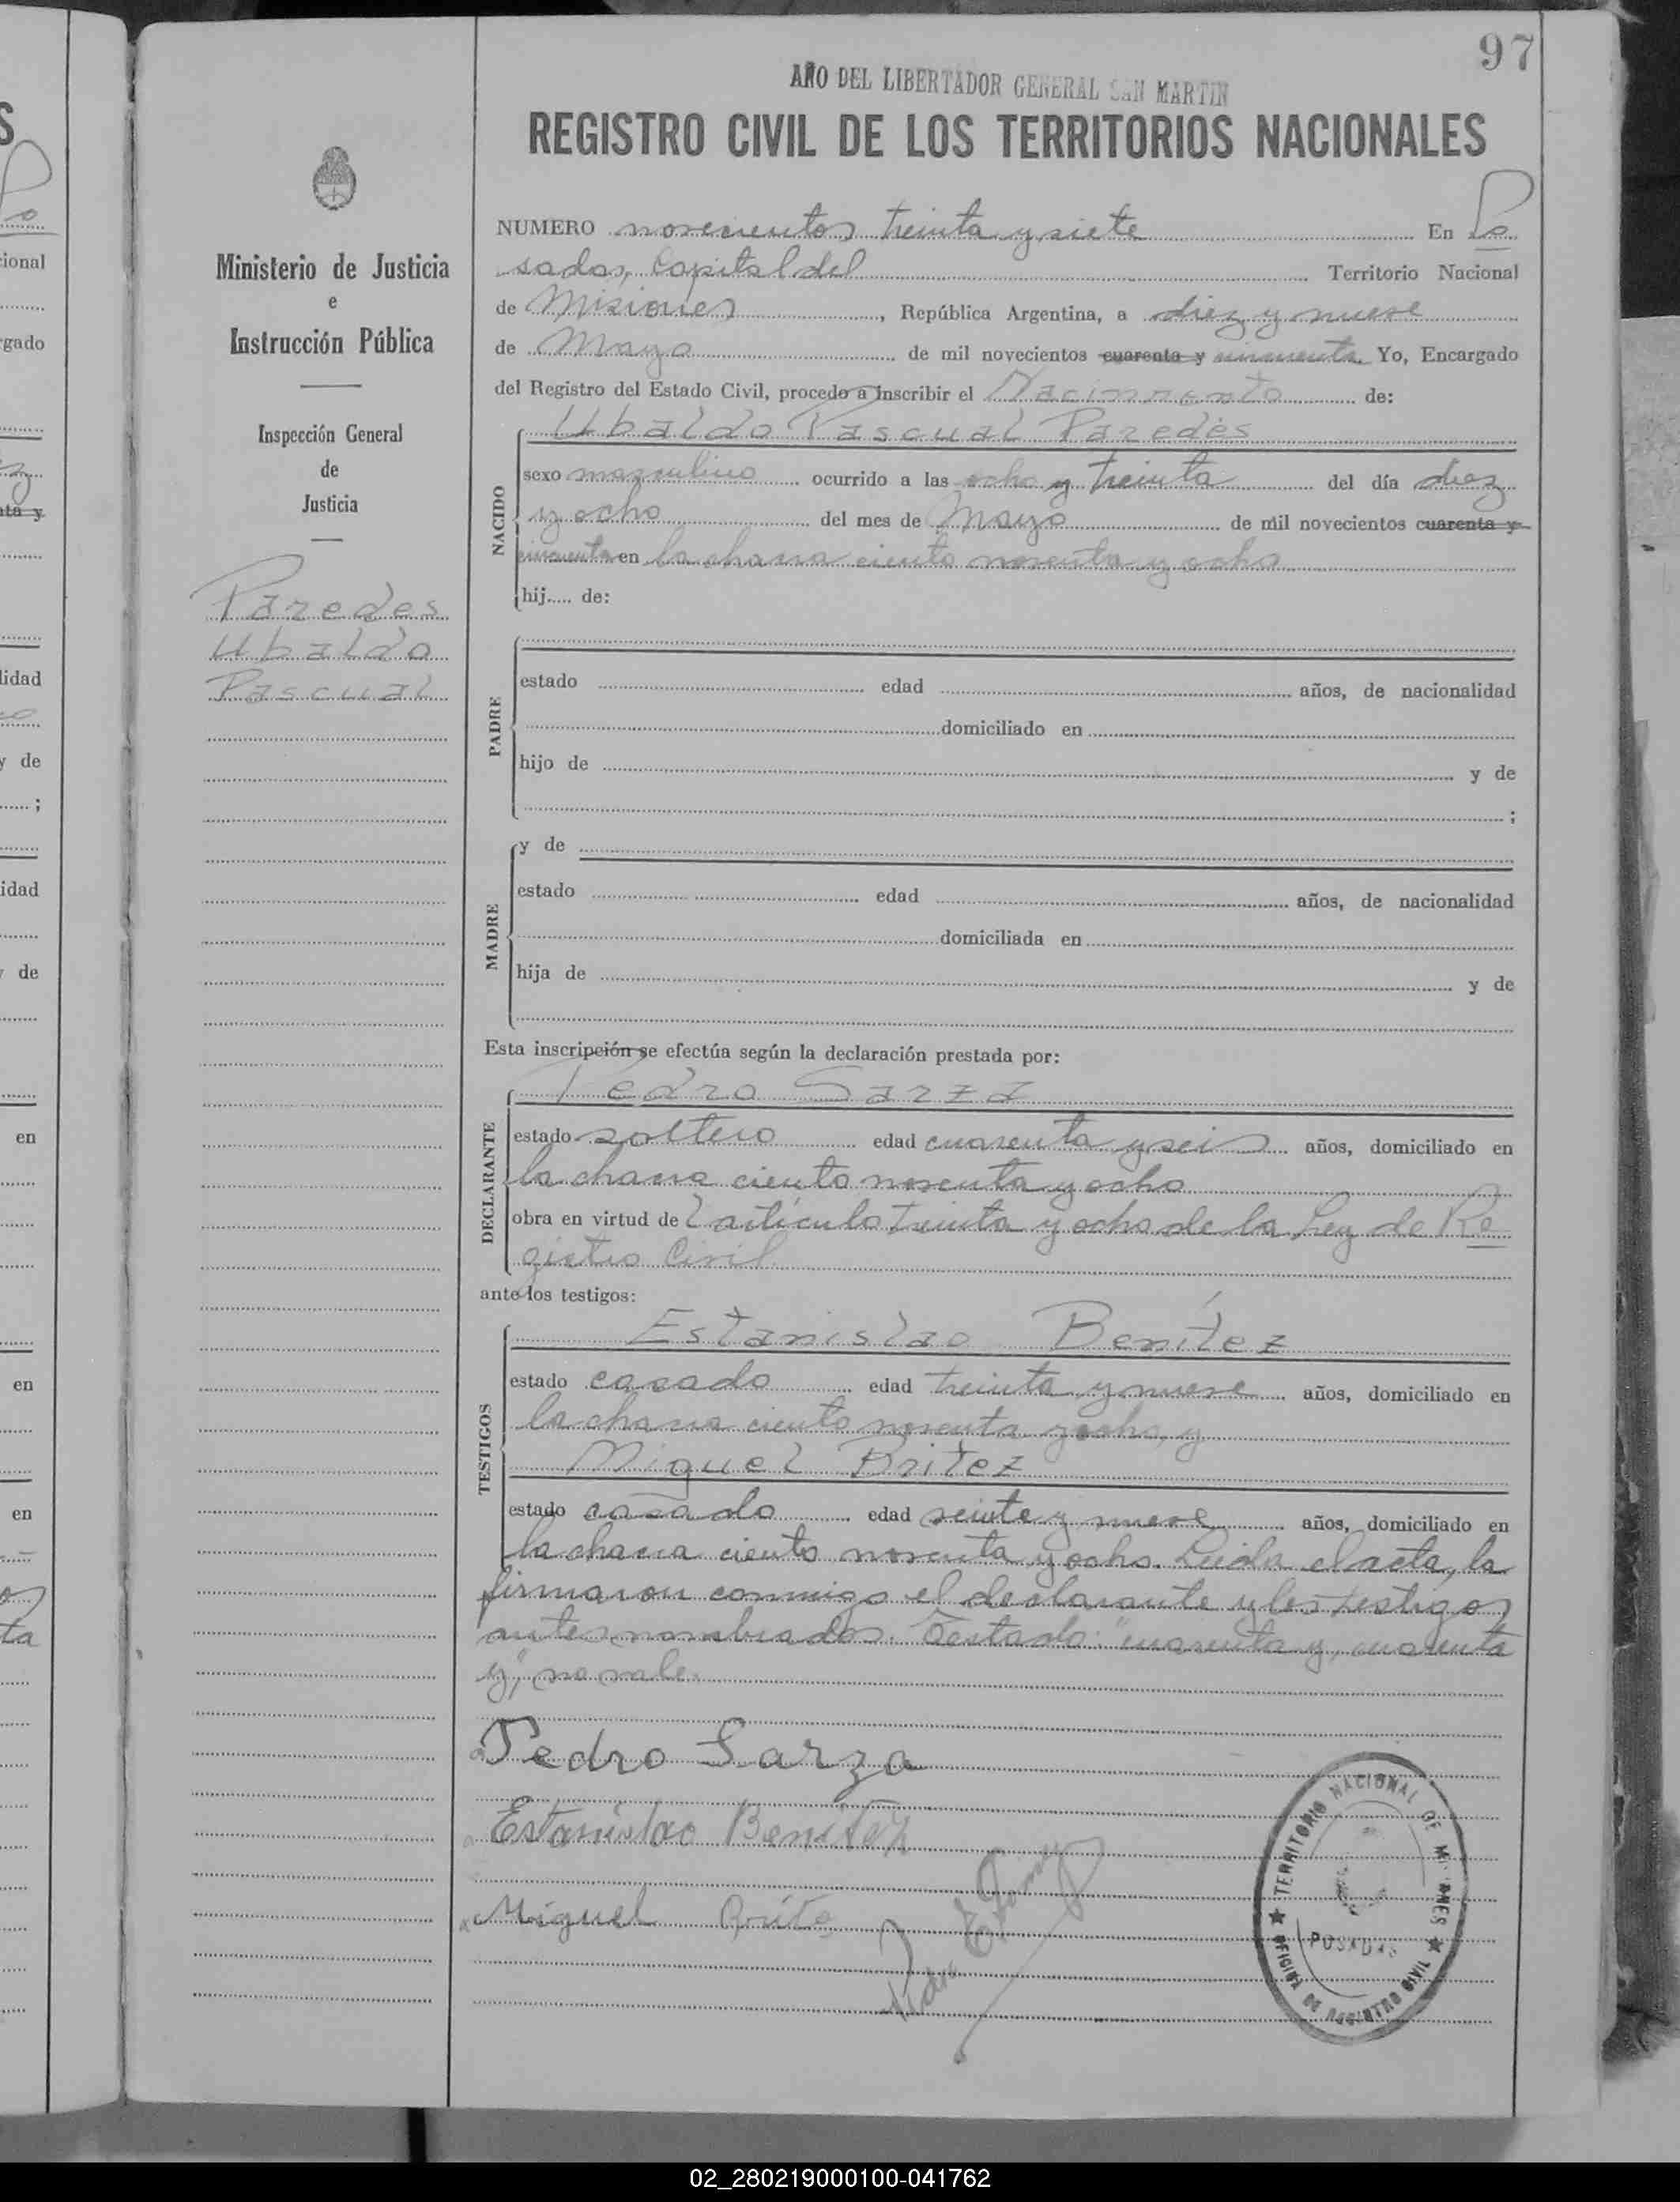 97
AÑO DEL LIBERTADOR GENERAL SAN MARTIN
REGISTRO CIVIL DE LOS TERRITORIOS NACIONALES
Ministerio de Justicia
e
Instrucción Pública
Inspección General
de
Justicia
Paredes
Ubaldo
Pascual
NUMERO novecientos treinta y siete En Po
sadas, Capital del Territorio Nacional
de Misiones, República Argentina, a diez y nueve
de Mayo de mil novecientos cuarenta y cincuenta. Yo, Encargado
del Registro del Estado Civil, procedo a inscribir el Nacimiento de:
NACIDO
Ubaldo Pascual Paredes
sexo masculino ocurrido a las ocho y treinta del día diez
y ocho del mes de Mayo de mil novecientos cuarenta y
cincuenta en la chacra ciento noventa y ocho
hij..... de:
PADRE
estado edad años, de nacionalidad
domiciliado en
hijo de y de
;
MADRE
y de
estado edad años, de nacionalidad
domiciliada en
hija de y de
Esta inscripción se efectúa según la declaración prestada por:
DECLARANTE
Pedro Sarza
estado soltero edad cuarenta y seis años, domiciliado en
la chacra ciento noventa y ocho
obra en virtud del artículo treinta y ocho de la Ley de Re
gistro Civil.
ante los testigos:
TESTIGOS
Estanislao Benítez
estado casado edad treinta y nueve años, domiciliado en
la chacra ciento noventa y ocho, y
Miguel Britez
estado casado edad veinte y nueve años, domiciliado en
la chacra ciento noventa y ocho. Leída el acta, la
firmaron conmigo el declarante y los testigos
antes nombrados. Testado: "cuarenta y, cuarenta
y", no vale.
Pedro Sarza
Estanislao Benitez
Miguel
TERRITORIO NACIONAL DE MISIONES
POSADAS
OFICINA DE REGISTRO CIVIL
02_280219000100-041762